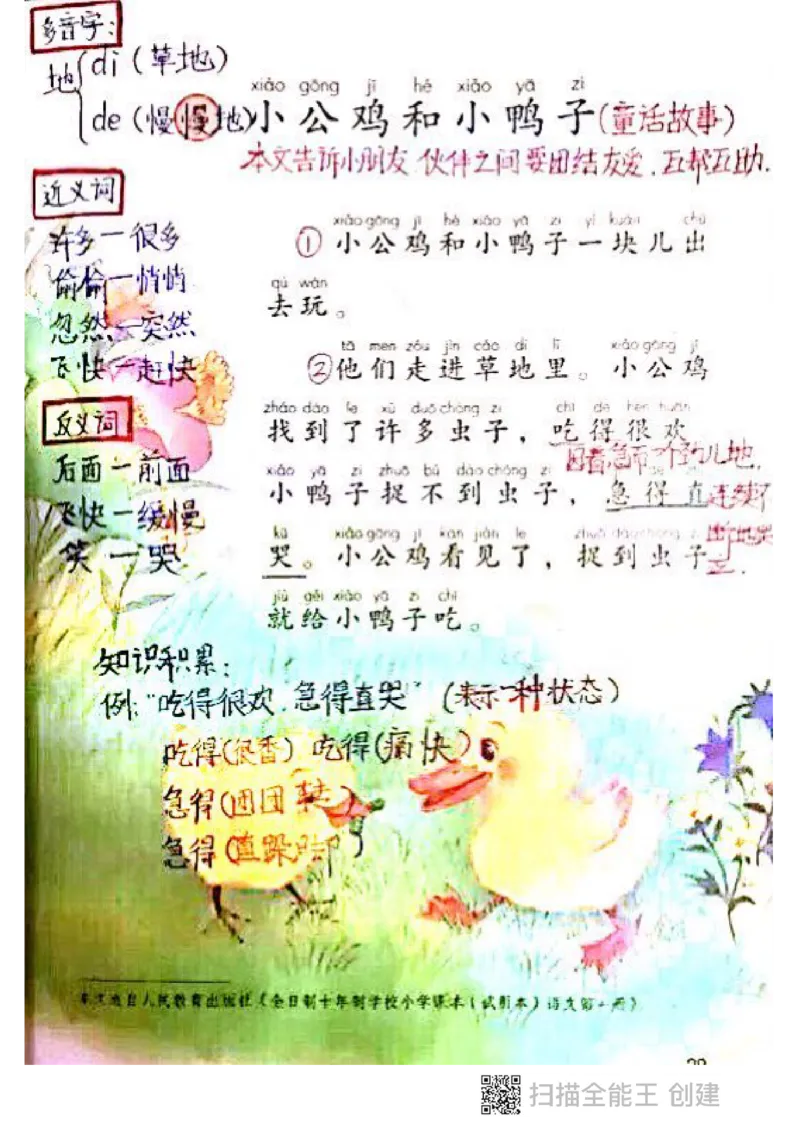 多音字:
地 dì (草地)
de (慢慢地)
xiǎo gōng jī hé xiǎo yā zi
5 小公鸡和小鸭子(童话故事)
本文告诉小朋友,伙伴之间要团结友爱,互帮互助.
近义词
许多—很多
偷偷—悄悄
忽然—突然
飞快—赶快
反义词
后面—前面
飞快—缓慢
笑—哭
xiǎo gōng jī hé xiǎo yā zi yí kuàir chū
①小公鸡和小鸭子一块儿出
qù wán
去玩。
tā men zǒu jìn cǎo dì lǐ xiǎo gōng jī
②他们走进草地里。小公鸡
zhǎo dào le xǔ duō chóng zi chī de hěn huān
找到了许多虫子,吃得很欢
因着急而不停儿地
xiǎo yā zi zhuō bú dào chóng zi
小鸭子捉不到虫子,急得直
连续不
kū xiǎo gōng jī kàn jiàn le zhuō dào chóng zi
哭。小公鸡看见了,捉到虫子
断地哭
jiù gěi xiǎo yā zi chī
就给小鸭子吃。
知识积累:
例:“吃得很欢,急得直哭”(表示一种状态)
吃得(很香) 吃得(痛快)
急得(团团转)
急得(直跺脚)
本文选自人民教育出版社《全日制十年制学校小学课本(试用本)语文第一册》
扫描全能王 创建